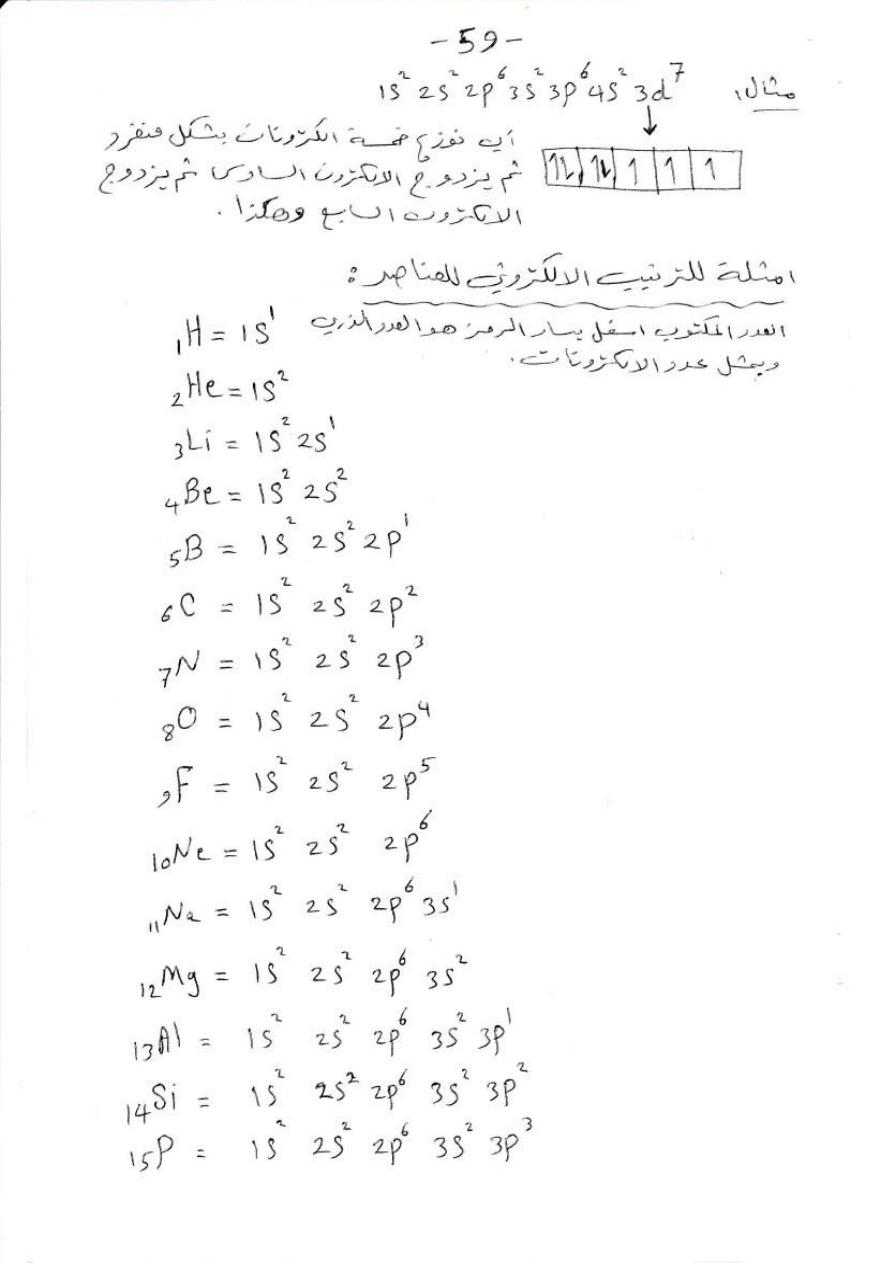 -59-
مثال: 1s² 2s² 2p⁶ 3s² 3p⁶ 4s² 3d⁷
أي نوزع خمسة الكترونات بشكل منفرد
1L 1L 1 1 1
ثم يزدوج الالكترون السادس ثم يزدوج
الالكترون السابع وهكذا.
امثلة للترتيب الالكتروني للعناصر:
العدد المكتوب اسفل يسار الرمز هو العدد الذري
ويمثل عدد الالكترونات.
₁H = 1s¹
₂He = 1s²
₃Li = 1s² 2s¹
₄Be = 1s² 2s²
₅B = 1s² 2s² 2p¹
₆C = 1s² 2s² 2p²
₇N = 1s² 2s² 2p³
₈O = 1s² 2s² 2p⁴
₉F = 1s² 2s² 2p⁵
₁₀Ne = 1s² 2s² 2p⁶
₁₁Na = 1s² 2s² 2p⁶ 3s¹
₁₂Mg = 1s² 2s² 2p⁶ 3s²
₁₃Al = 1s² 2s² 2p⁶ 3s² 3p¹
₁₄Si = 1s² 2s² 2p⁶ 3s² 3p²
₁₅P = 1s² 2s² 2p⁶ 3s² 3p³